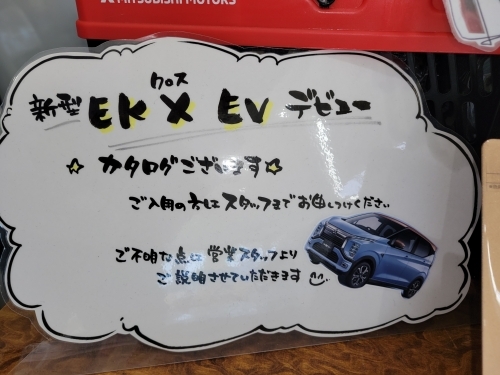 MITSUBISHI MOTORS
クロス
新型 EK X EV デビュー
☆ カタログございます☆
ご入用の方はスタッフまでお申しつけください
ご不明な点は営業スタッフより
ご説明させていただきます